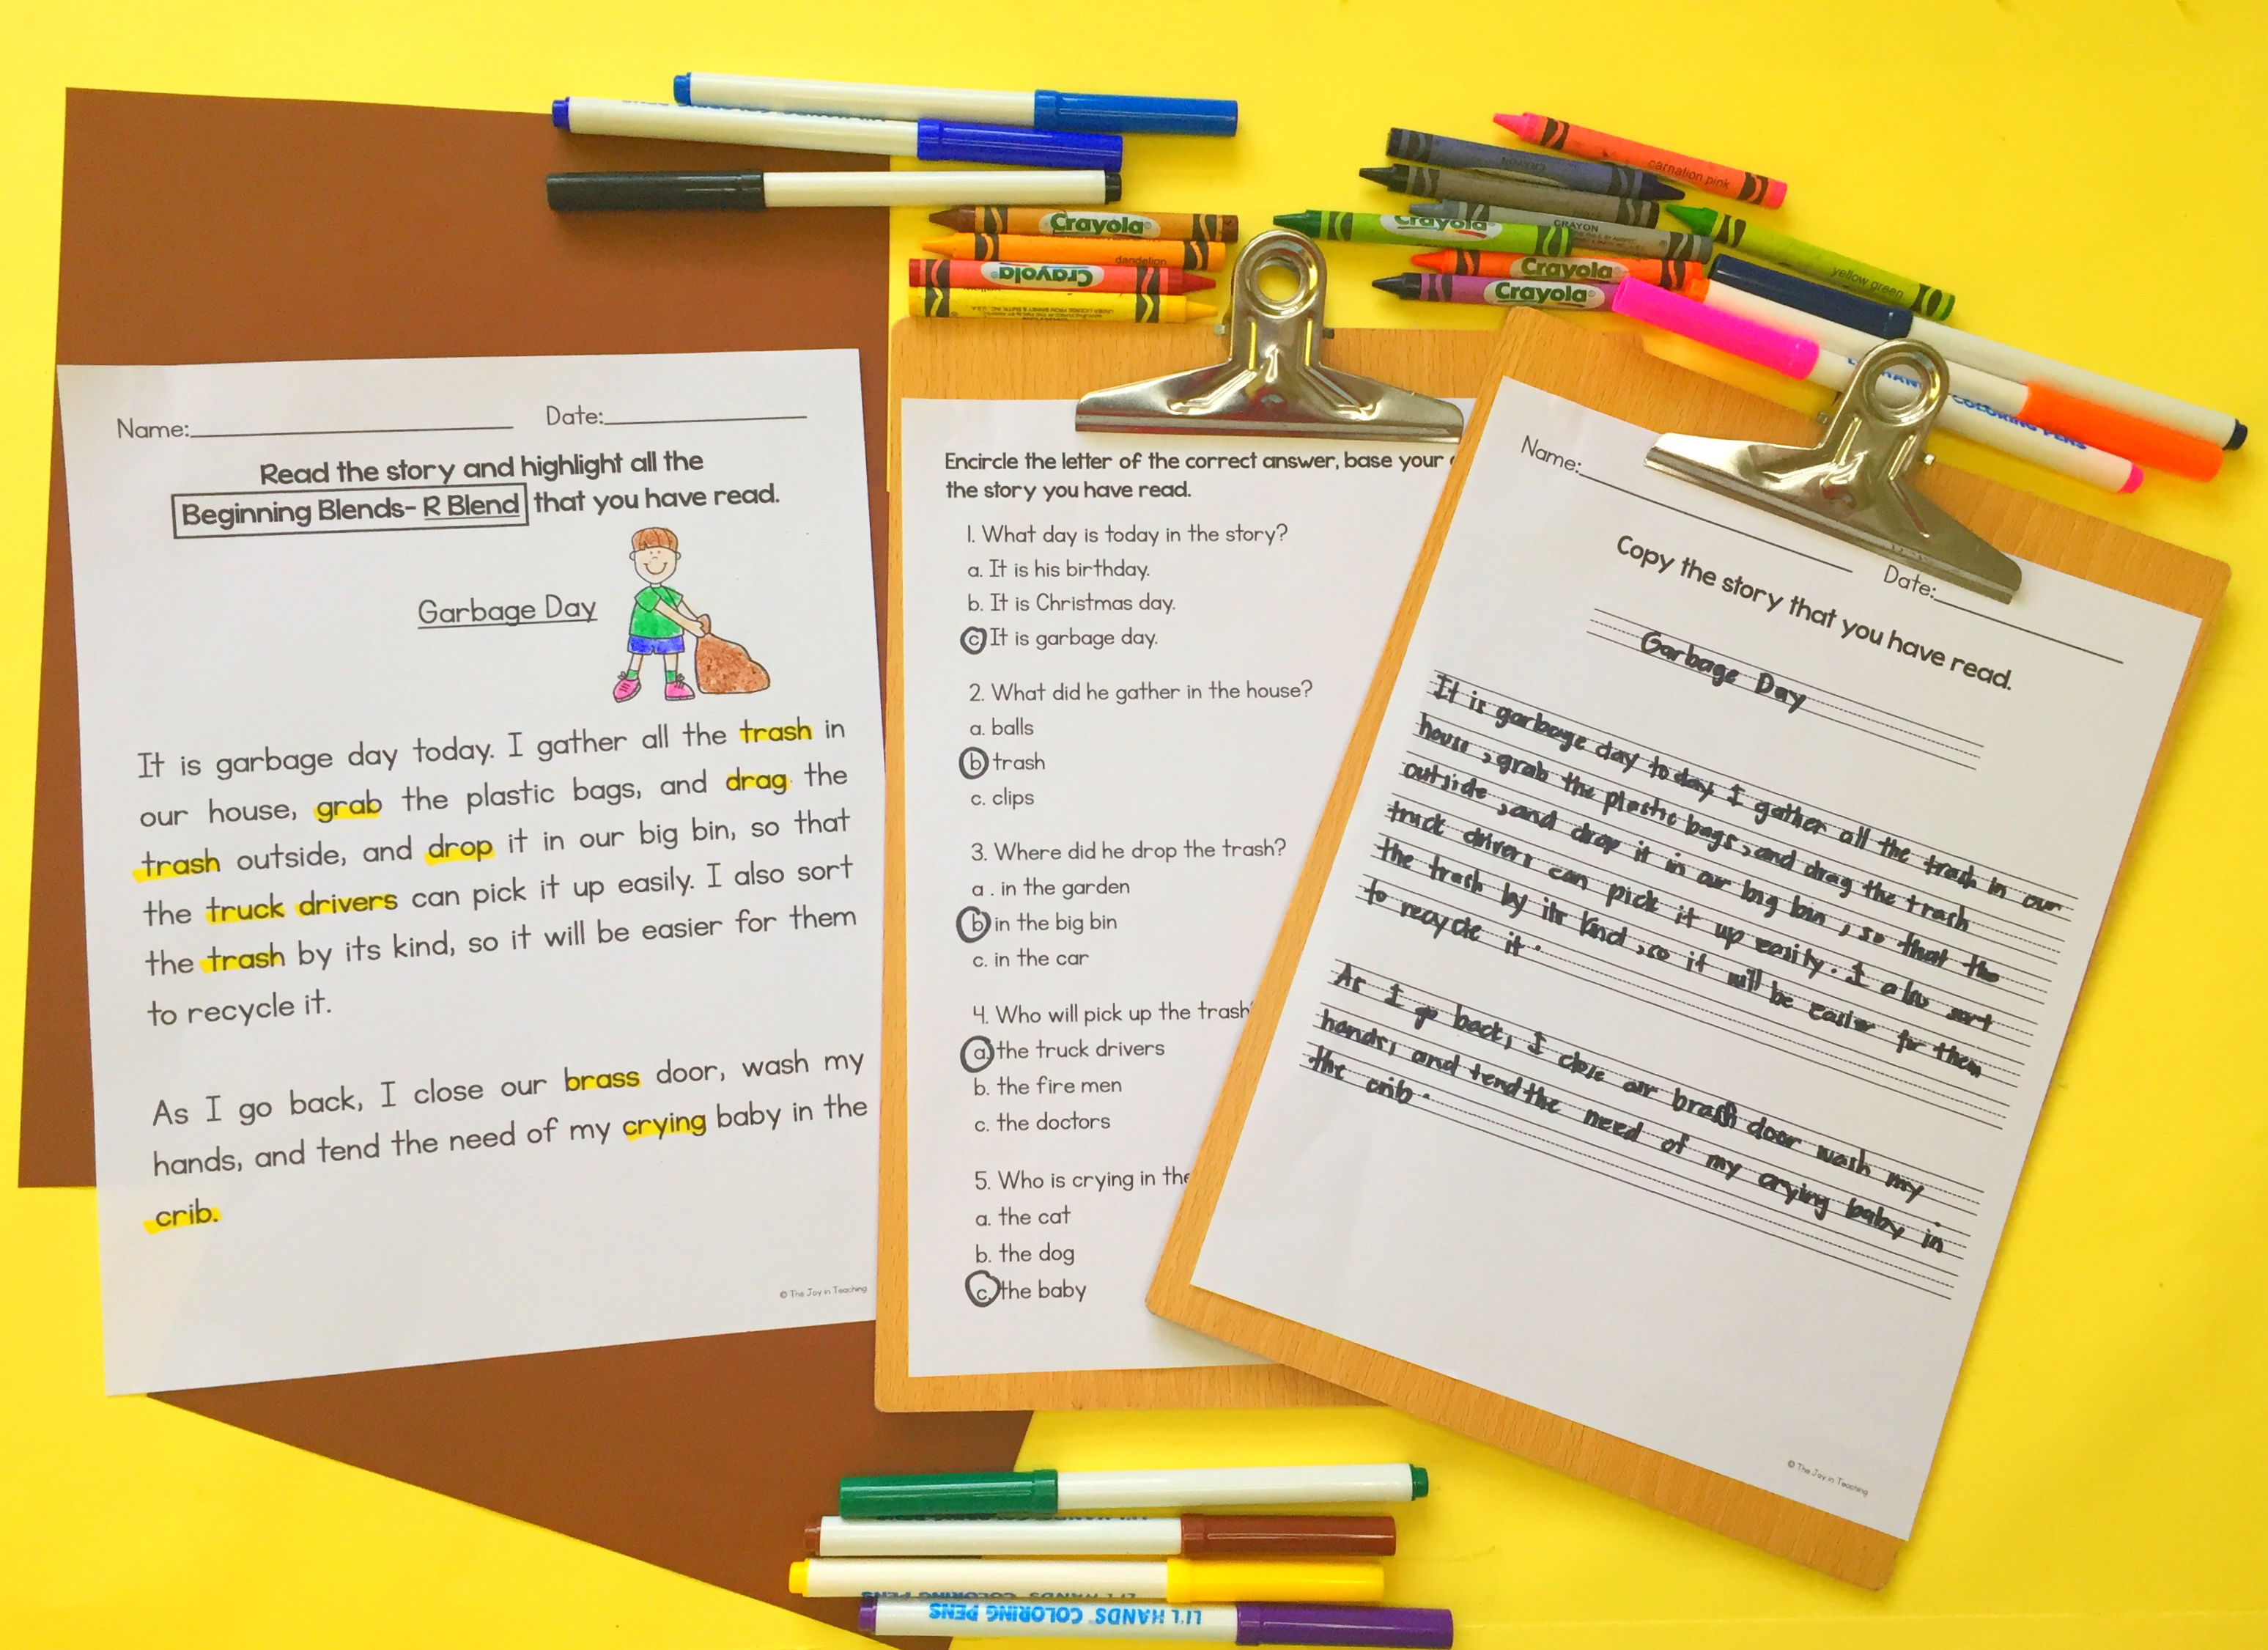 Name: Date:
Read the story and highlight all the
Beginning Blends- R Blend that you have read.
Garbage Day
It is garbage day today. I gather all the trash in
our house, grab the plastic bags, and drag the
trash outside, and drop it in our big bin, so that
the truck drivers can pick it up easily. I also sort
the trash by its kind, so it will be easier for them
to recycle it.
As I go back, I close our brass door, wash my
hands, and tend the need of my crying baby in the
crib.
© The Joy in Teaching
Encircle the letter of the correct answer, base your
the story you have read.
1. What day is today in the story?
a. It is his birthday.
b. It is Christmas day.
c It is garbage day.
2. What did he gather in the house?
a. balls
b trash
c. clips
3. Where did he drop the trash?
a . in the garden
b in the big bin
c. in the car
4. Who will pick up the trash
a the truck drivers
b. the fire men
c. the doctors
5. Who is crying in the
a. the cat
b. the dog
c. the baby
Name: Date:
Copy the story that you have read.
Garbage Day
It is garbage day today. I gather all the trash in our
house, grab the plastic bags, and drag the trash
outside, and drop it in our big bin, so that the
truck drivers can pick it up easily. I also sort
the trash by its kind, so it will be easier for them
to recycle it.
As I go back, I close our brass door wash my
hands, and tend the need of my crying baby in
the crib.
© The Joy in Teaching
Crayola
dandelion
Crayola
carnation pink
CRAYON
Crayola
CRAYON
yellow green
Crayola
Crayola
COLORING PENS
LI'L HANDS COLORING PENS
LI'L HANDS COLORING PENS